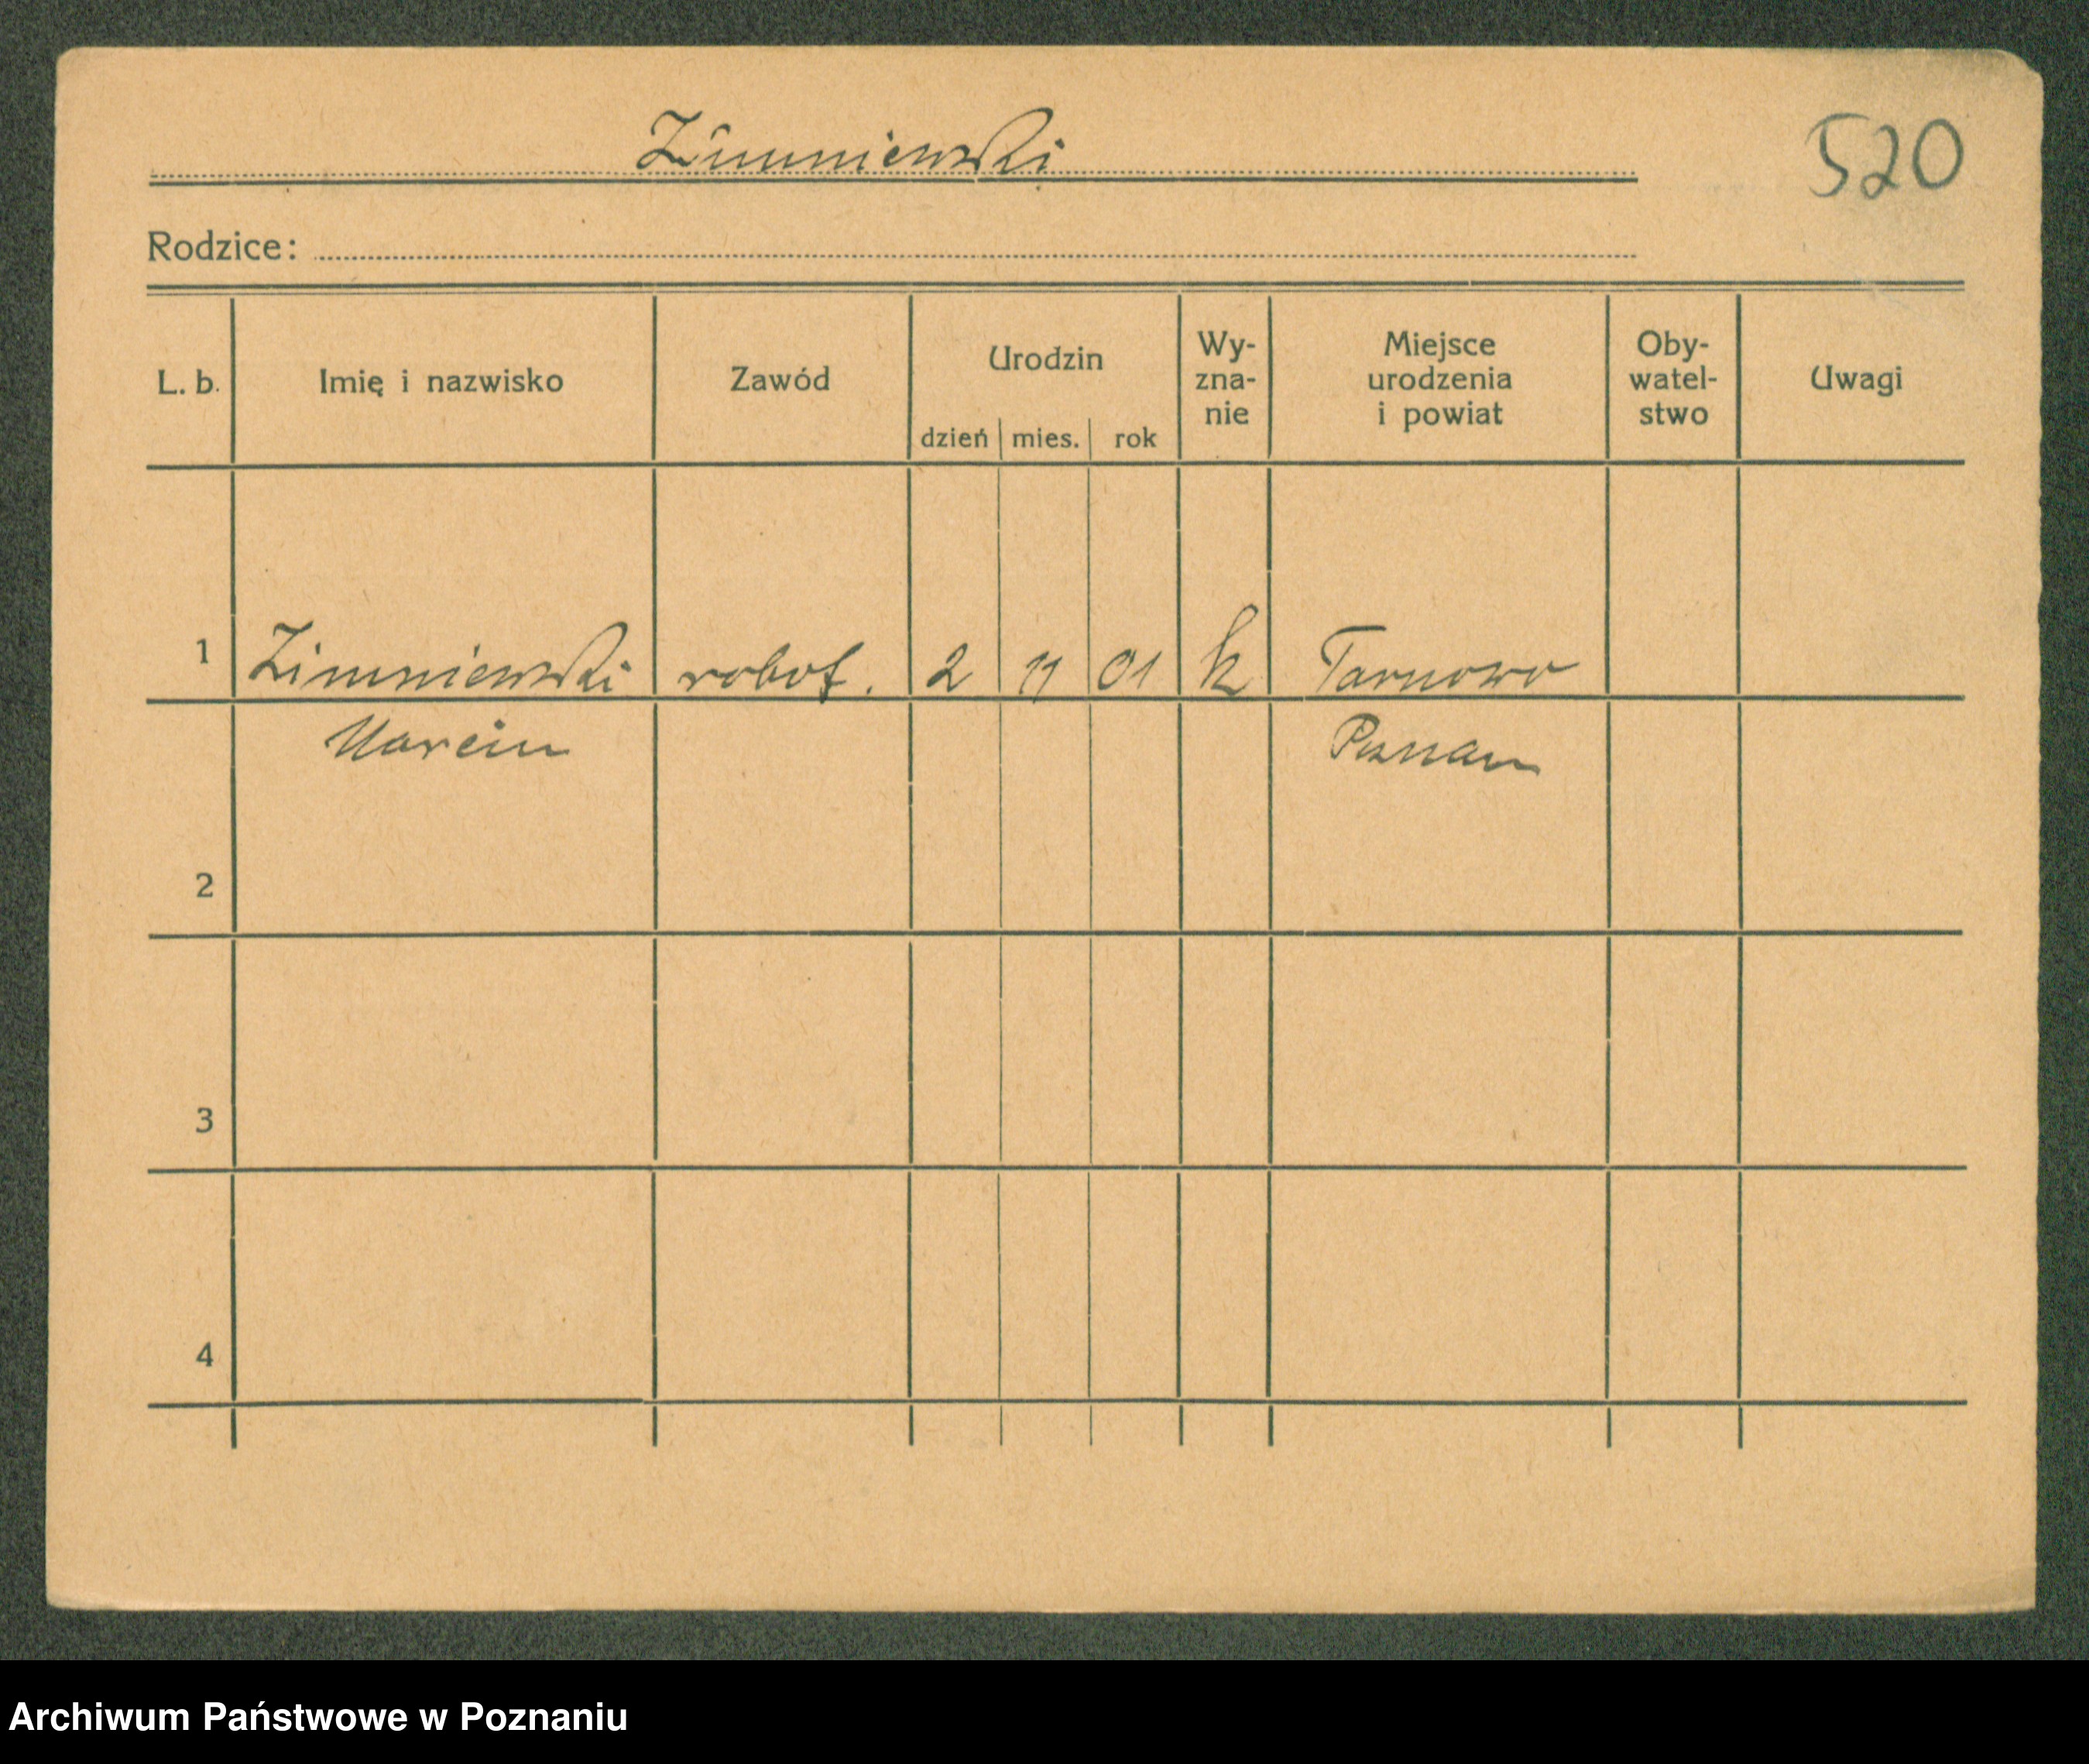 Zimniewski
520
Rodzice:
L. b.
Imię i nazwisko
Zawód
Urodzin
dzień
mies.
rok
Wy-
zna-
nie
Miejsce
urodzenia
i powiat
Oby-
watel-
stwo
Uwagi
1 Zimniewski robot. 2 11 01 k Tarnowo
Marcin Poznan
2
3
4
Archiwum Państwowe w Poznaniu